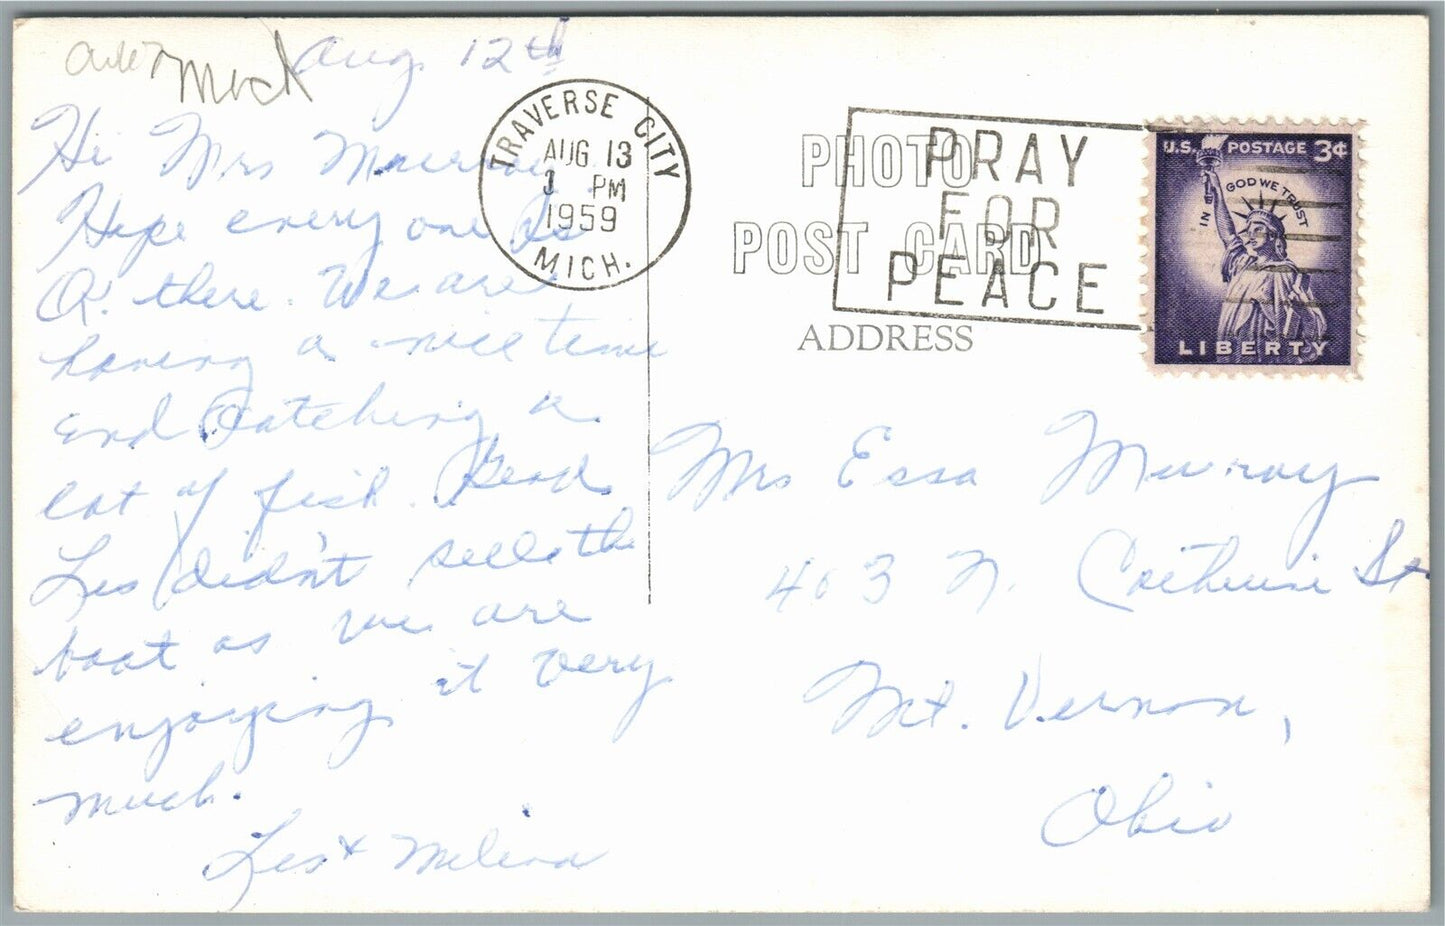 Mich
Aug 12th
Hi Mrs Murray
Hope every one is
O.K. there. We are
having a nice time
and catching a
lot of fish. Glad
Les didn't sell the
boat as we are
enjoying it very
much.
Les & Melena
TRAVERSE CITY
AUG 13
PM
1959
MICH.
PHOTO
POST CARD
ADDRESS
PRAY
FOR
PEACE
U.S. POSTAGE 3¢
IN GOD WE TRUST
LIBERTY
Mrs Essa Murray
403 N. Catherine St
Mt. Vernon,
Ohio